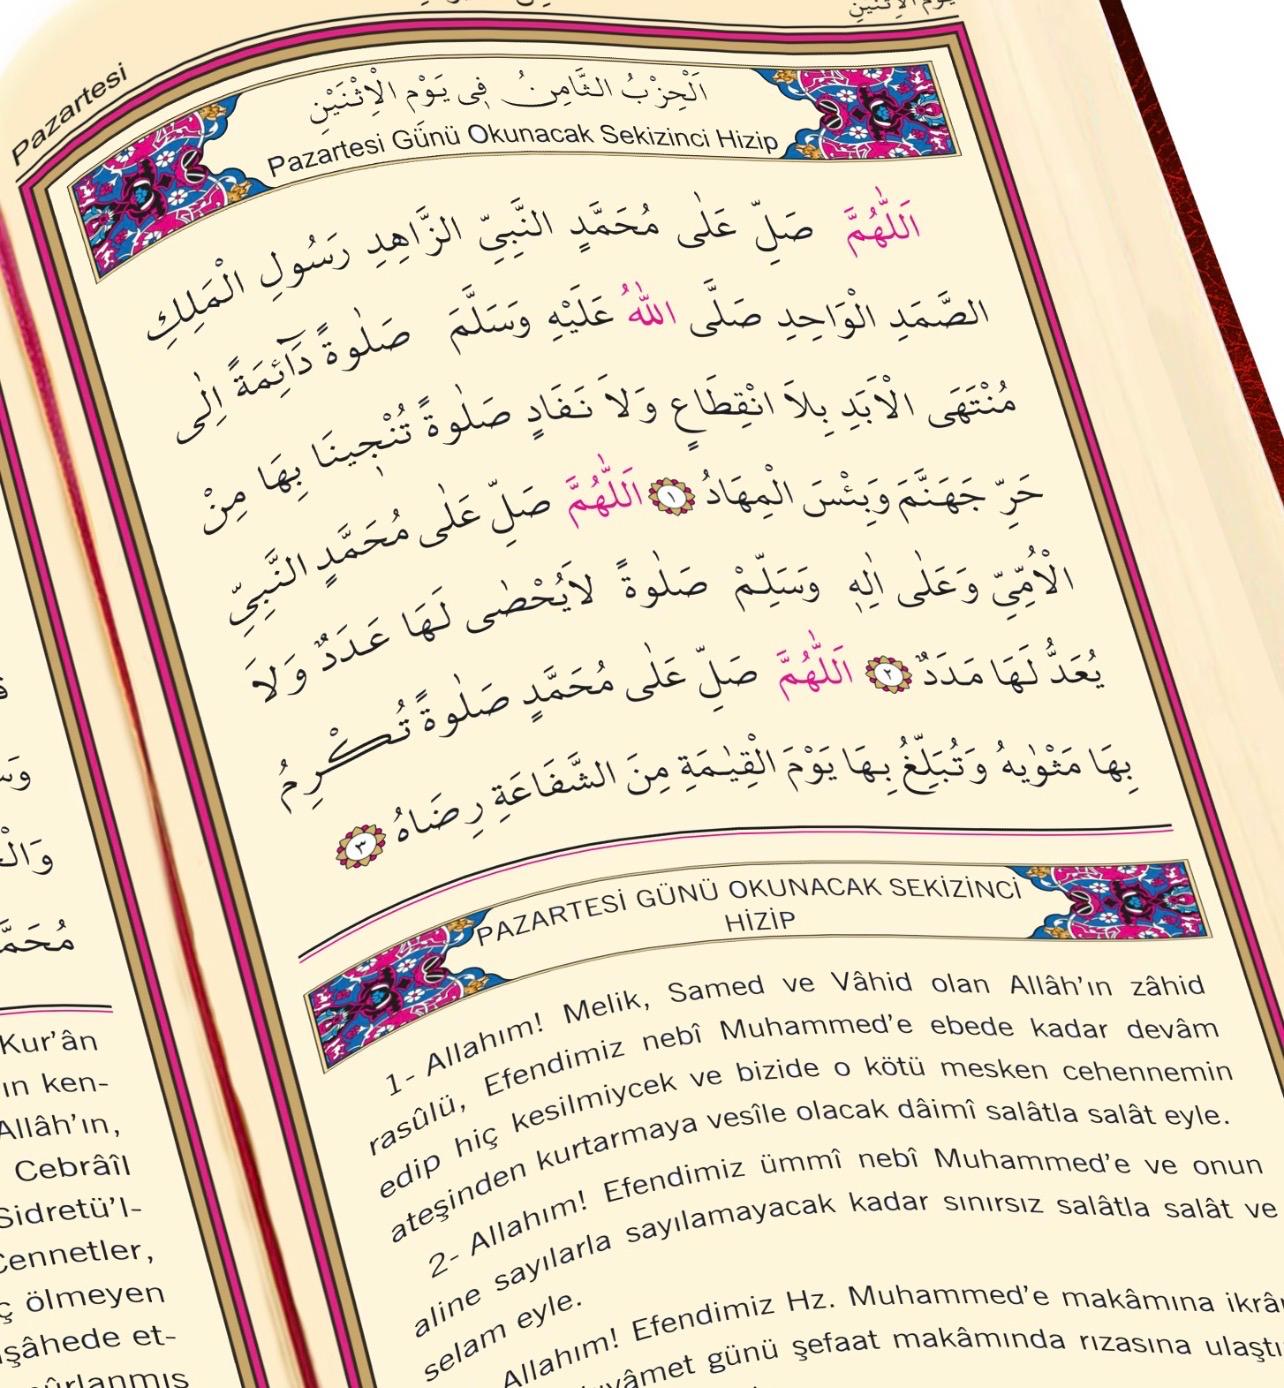 Pazartesi
يَوْمِ الْاِثْنَيْنِ
اَلْحِزْبُ الثَّامِنُ فِى يَوْمِ الْاِثْنَيْنِ
Pazartesi Günü Okunacak Sekizinci Hizip
اَللّٰهُمَّ صَلِّ عَلٰى مُحَمَّدٍ النَّبِيِّ الزَّاهِدِ رَسُولِ الْمَلِكِ
الصَّمَدِ الْوَاحِدِ صَلَّى اللّٰهُ عَلَيْهِ وَسَلَّمَ صَلٰوةً دَٓائِمَةً اِلٰى
مُنْتَهَى الْاَبَدِ بِلاَ انْقِطَاعٍ وَلاَ نَفَادٍ صَلٰوةً تُنْجِينَا بِهَا مِنْ
حَرِّ جَهَنَّمَ وَبِئْسَ الْمِهَادُ ١ اَللّٰهُمَّ صَلِّ عَلٰى مُحَمَّدٍ النَّبِيِّ
الْاُمِّيِّ وَعَلٰى اٰلِهٖ وَسَلِّمْ صَلٰوةً لاَيُحْصٰى لَهَا عَدَدٌ وَلاَ
يُعَدُّ لَهَا مَدَدٌ ٢ اَللّٰهُمَّ صَلِّ عَلٰى مُحَمَّدٍ صَلٰوةً تُكْرِمُ
بِهَا مَثْوٰيهُ وَتُبَلِّغُ بِهَا يَوْمَ الْقِيٰمَةِ مِنَ الشَّفَاعَةِ رِضَاهُ ٣
PAZARTESİ GÜNÜ OKUNACAK SEKİZİNCİ
HİZİP
1- Allahım! Melik, Samed ve Vâhid olan Allâh’ın zâhid
rasûlü, Efendimiz nebî Muhammed’e ebede kadar devâm
edip hiç kesilmiycek ve bizide o kötü mesken cehennemin
ateşinden kurtarmaya vesîle olacak dâimî salâtla salât eyle.
2- Allahım! Efendimiz ümmî nebî Muhammed’e ve onun
aline sayılarla sayılamayacak kadar sınırsız salâtla salât ve
selam eyle.
Allahım! Efendimiz Hz. Muhammed’e makâmına
günü şefaat makâmında rızasına
Kur’ân
ken-
Allâh’ın,
Cebrâîl
Sidretü’l-
Cennetler,
ölmeyen
et-